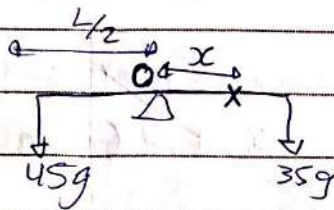 L/2
O x
X
45g 35g